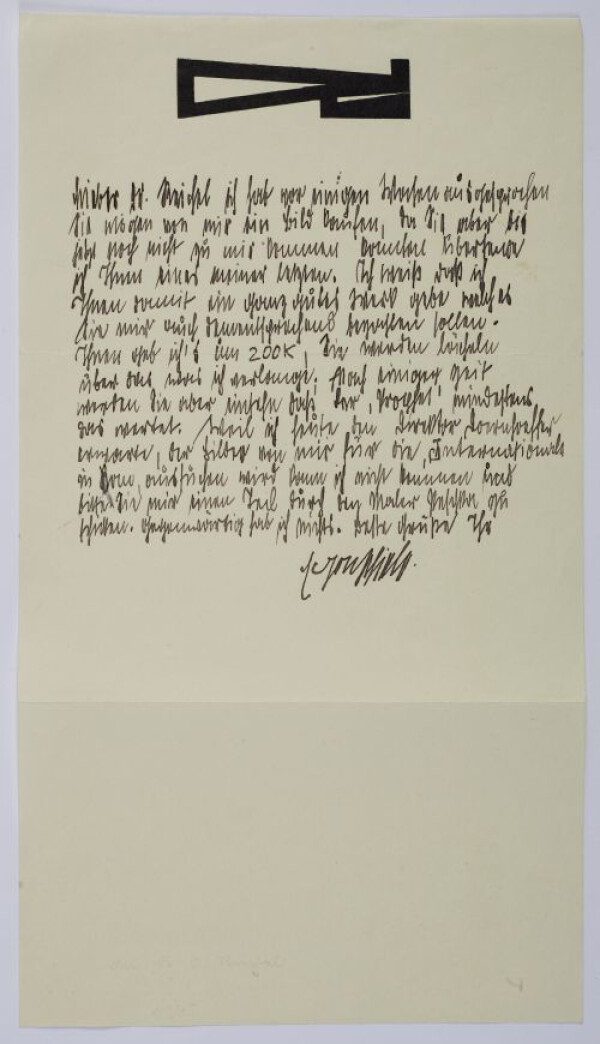 Lieber Dr. Reichel ich hab vor einigen Wochen ausgesprochen
Sie mögen von mir ein Bild kaufen, da Sie aber bis
jetzt noch nicht zu mir kommen konnten übersende
ich Ihnen eines meiner letzten. Ich weiß daß ich
Ihnen damit ein ganz gutes Werk gebe welches
Sie mir auch dementsprechend beachten sollen.
Ihnen geb ich's um 200K, Sie werden lächeln
über das was ich verlange; Nach einiger Zeit
werden Sie aber einsehn daß der „Prophet" mindestens
das wertet. Weil ich heute den Direktor Doernhoeffer
erwarte, der Bilder von mir für die „Internationale
in Rom, aussuchen wird kann ich nicht kommen und
bitte Sie mir einen Teil durch den Maler Peschka zu
schicken. Gegenwärtig hab ich nichts. Beste Grüße Ihr
Egon Schiele.